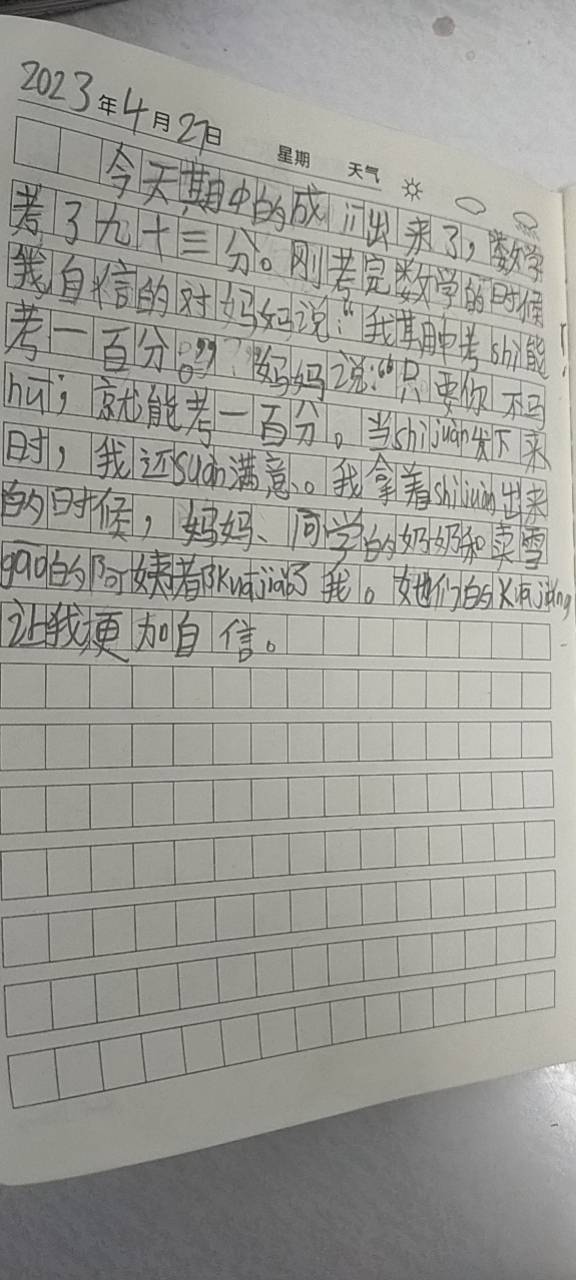 2023年4月27日 星期 天气
今天期中的成 出来了，数学
考了九十三分。刚考完数学的时候
我自信的对妈妈说：“我期中考shi能
考一百分。”妈妈说：“只要你不马
hu，就能考一百分。当shijuàn发下来
时，我还suàn满意。我拿着shijuàn出来
的时候，妈妈、同学的奶奶和卖雪
gāo的阿姨者都kuajiǎng了我。她们的kuājiǎng
让我更加自信。